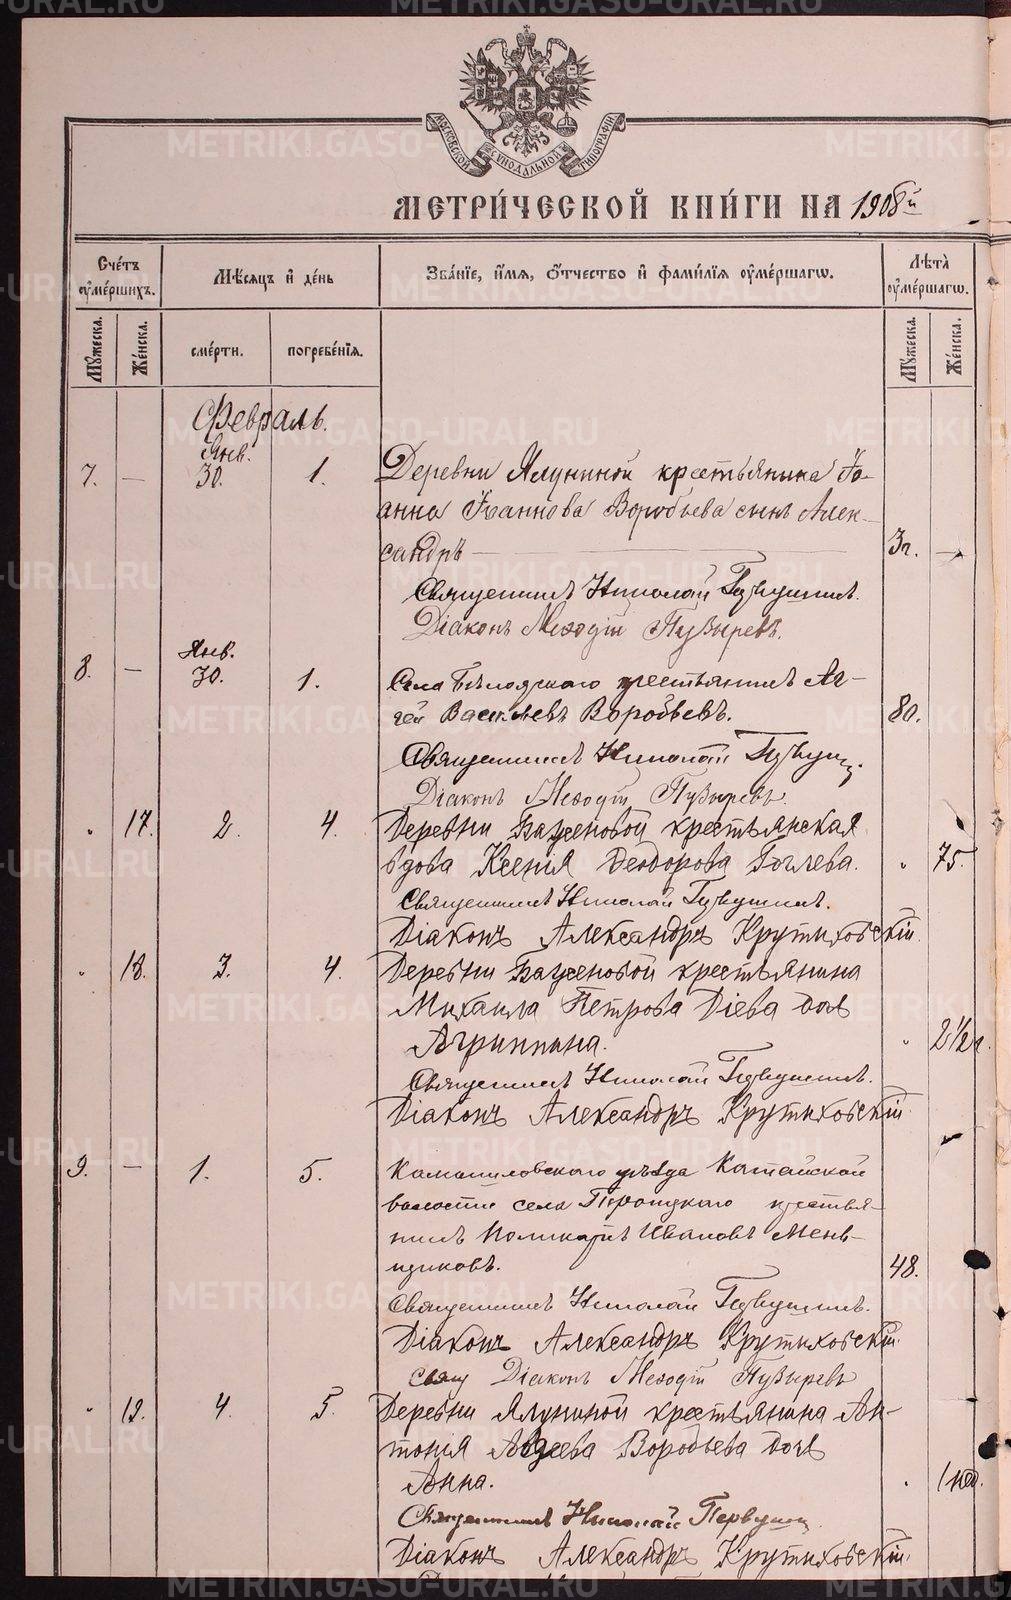 МОСКОВСКОЙ СѴНОДАЛЬНОЙ ТИПОГРАФІИ
МЕТРИ́ЧЕСКОЙ КНИ́ГИ НА 1908й
Сче́тъ ᲂу҆ме́ршихъ.
Мѣ́сѧцъ и҆ де́нь
Зва́нїе, и҆́мѧ, ѻ҆́тчество и҆ фами́лїѧ ᲂу҆ме́ршагѡ.
Лѣта̀ ᲂу҆ме́ршагѡ.
Мꙋ́жеска.
Же́нска.
сме́рти.
погребе́нїѧ.
Мꙋ́жеска.
Же́нска.
Февраль.
Янв.
7. — 30. 1. Деревни Ялуниной крестьянина Іо-
анна Іоаннова Воробьева сынъ Алек-
сандръ — 3г. —
Священникъ Николай Первушинъ.
Діаконъ Меѳодій Пузыревъ.
Янв.
8. — 30. 1. Села Бѣлоярскаго крестьянинъ Аг-
гей Васильевъ Воробьевъ. 80.
Священникъ Николай
Діаконъ Меѳодій Пузыревъ.
" 17. 2. 4. Деревни Баженовой крестьянская
вдова Ксенія Ѳеодорова " 75.
Священникъ Николай Первушинъ.
Діаконъ Александръ Крутиховскій.
" 18. 3. 4. Деревни Баженовой крестьянина
Михаила Петрова Діева дочь
Агриппина. " 2 1/2 г.
Священникъ Николай Первушинъ.
Діаконъ Александръ Крутиховскій.
9. — 1. 5. Камышловскаго уѣзда Катайской
волости села крестья-
нинъ Поликарпъ Ивановъ Мень-
щиковъ. 48.
Священникъ Николай Первушинъ.
Діаконъ Александръ Крутиховскій.
Діаконъ Меѳодій Пузыревъ
" 19. 4. 5. Деревни Ялуниной крестьянина Ан-
тонія Авдеева Воробьева дочь
Анна. " 1 нед.
Священникъ Николай Первушин
Діаконъ Александръ Крутиховскій.
METRIKI.GASO-URAL.RU